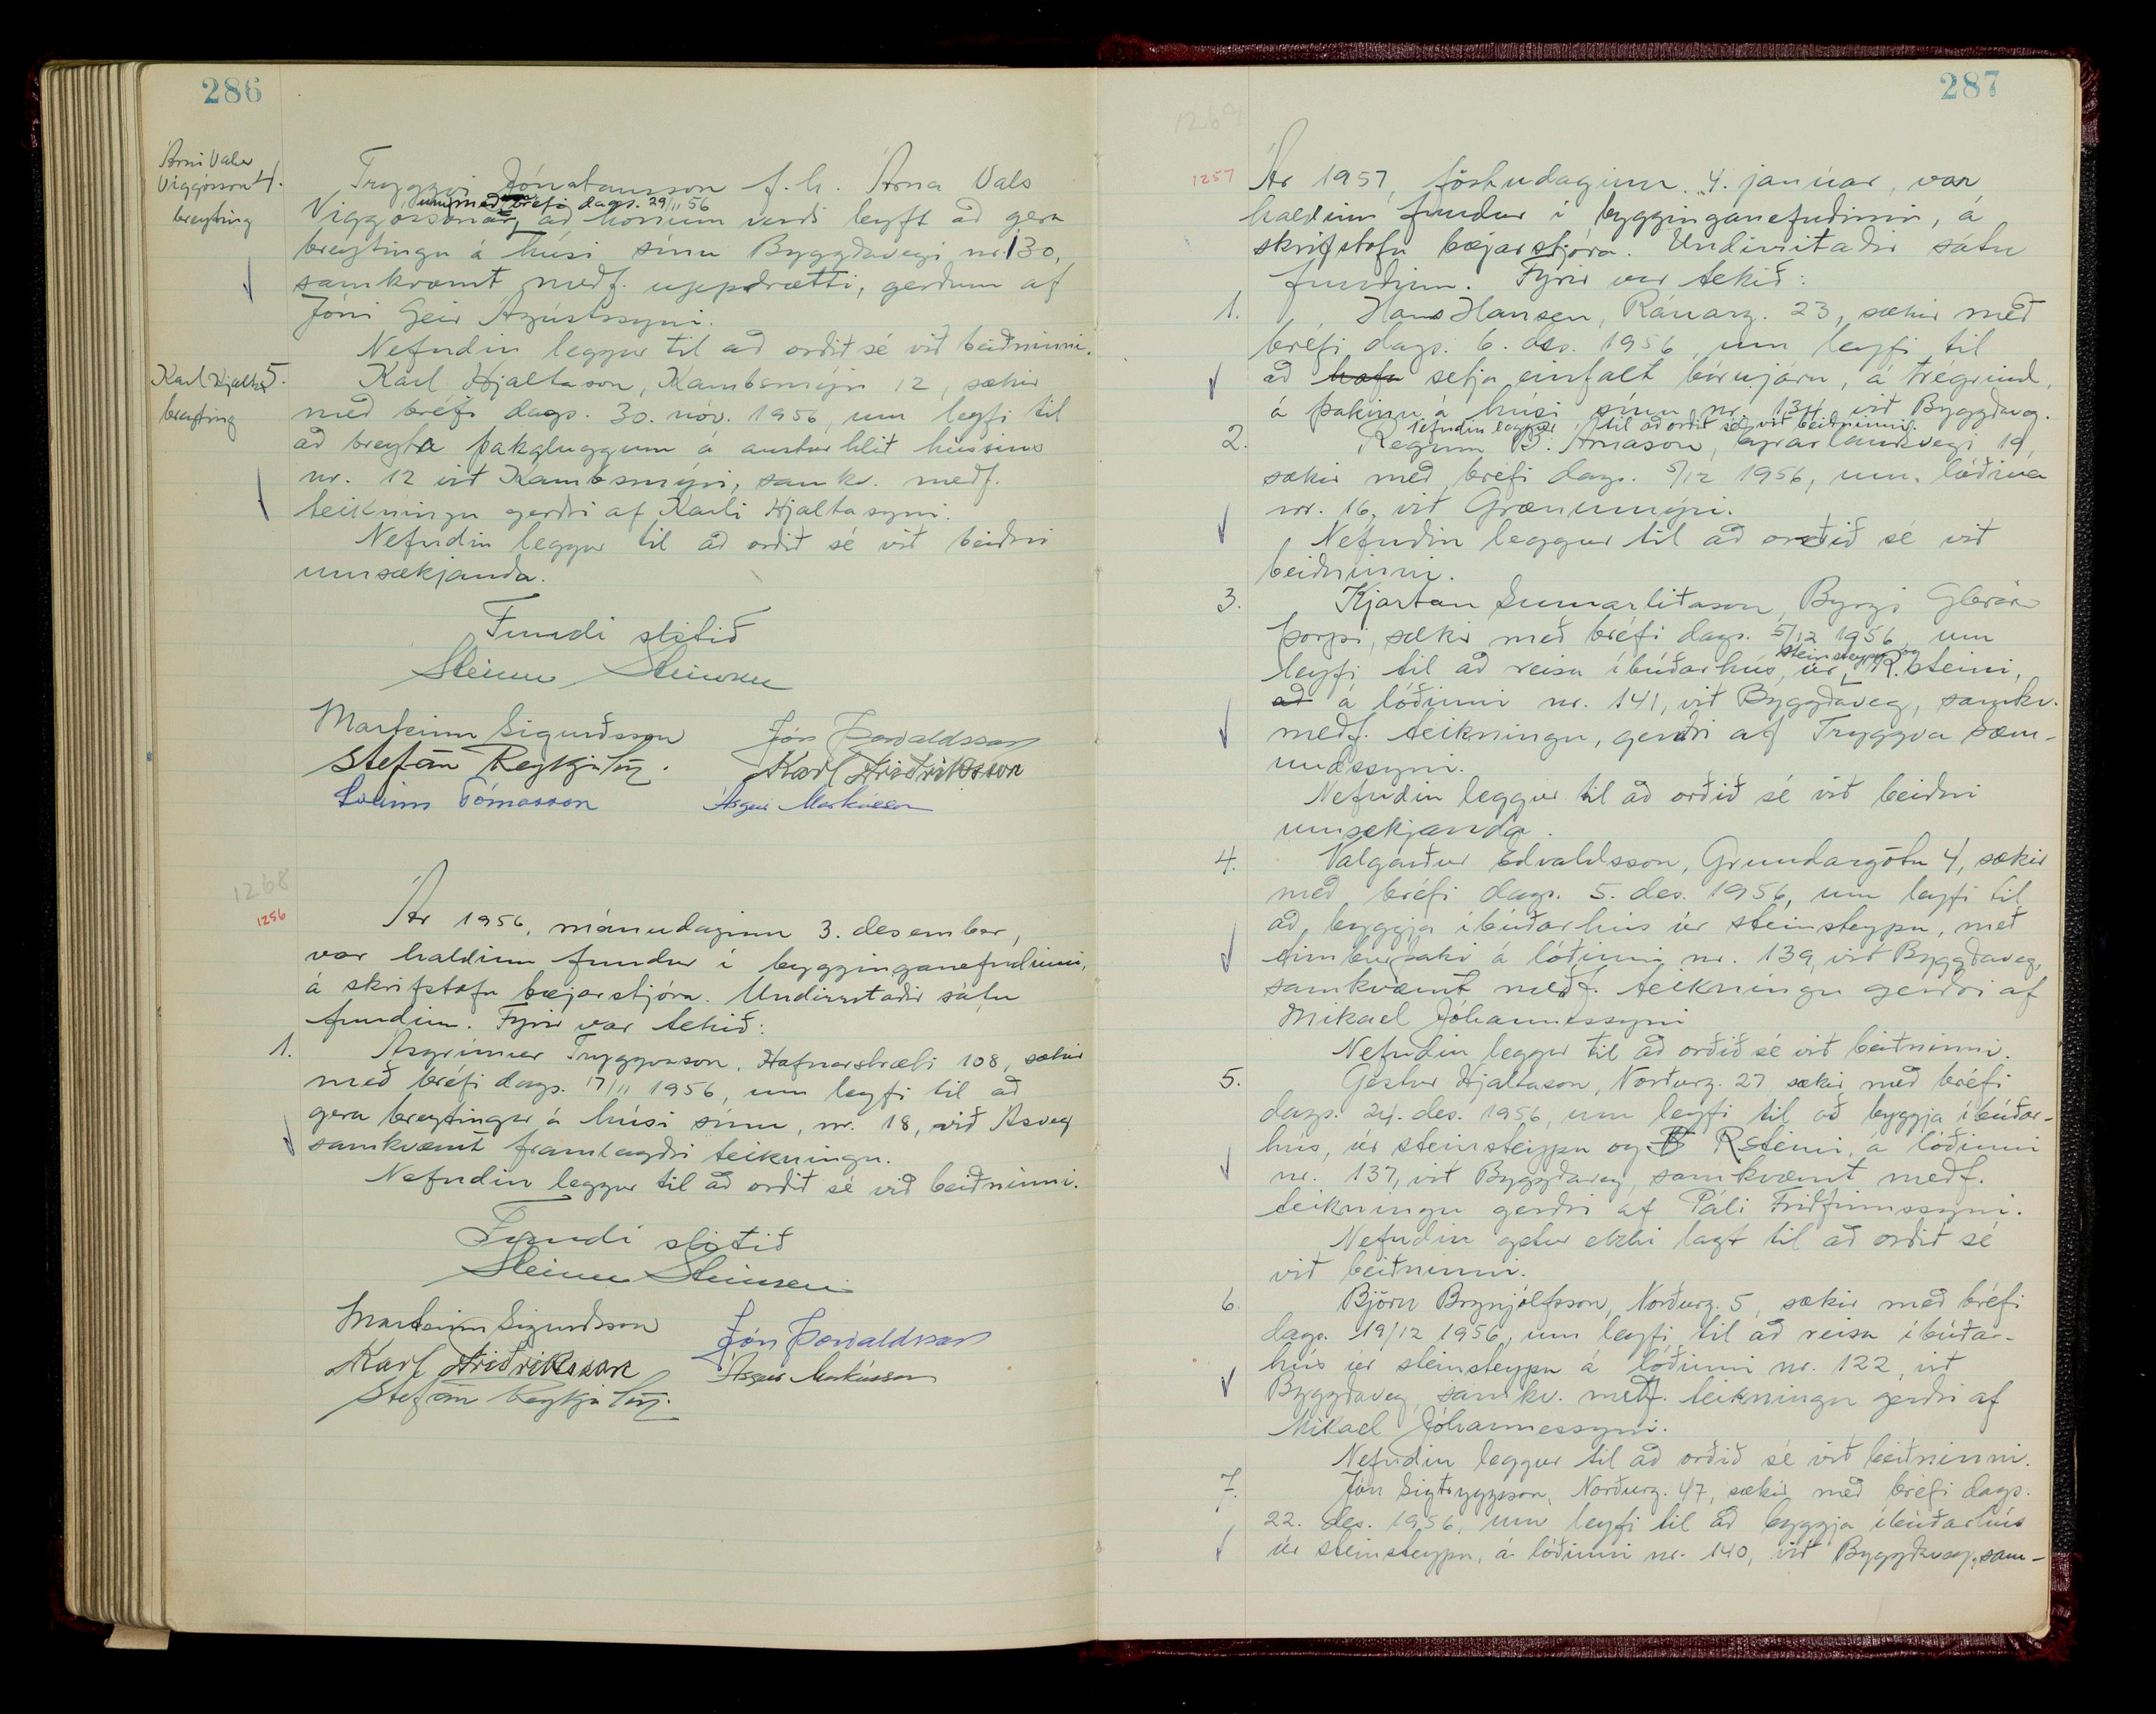 286
Árni Valur
Viggósson 4.
breyting
Tryggvi Jónatansson f.h. Árna Vals
Viggóssonar, með bréfi dags. 29/11 56
að honum verði leyft að gera
breytingu á húsi sínu Byggðavegi nr. 130,
samkvæmt meðf. uppdrætti, gerðum af
Jóni Geir Ágústssyni.
Nefndin leggur til að orðið sé við beiðninni.
Karl Hjaltas. 5.
breyting
Karl Hjaltason, Kambsmýri 12, sækir
með bréfi dags. 30. nóv. 1956, um leyfi til
að breyta þakgluggum á austurhlið hússins
nr. 12 við Kambsmýri, samkv. meðf.
teikningu gerðri af Karli Hjaltasyni.
Nefndin leggur til að orðið sé við beiðni
umsækjanda.
Fundi slitið
Steinn Steinsen
Marteinn Sigurðsson Jón Þorvaldsson
Stefán Reykjalín. Karl Friðriksson
Sveinn Tómasson Ásgeir Markússon
1268
1256
Ár 1956, mánudaginn 3. desember,
var haldinn fundur í bygginganefndinni,
á skrifstofu bæjarstjóra. Undirritaðir sátu
fundinn. Fyrir var tekið:
1. Ásgrímur Tryggvason, Hafnarstræti 108, sækir
með bréfi dags. 17/11 1956, um leyfi til að
gera breytingar á húsi sínu, nr. 18, við Ásveg
samkvæmt framlagðri teikningu.
Nefndin leggur til að orðið sé við beiðninni.
Fundi slitið
Steinn Steinsen
Marteinn Sigurðsson Jón Þorvaldsson
Karl Friðriksson Ásgeir Markússon
Stefán Reykjalín.
287
1269
1257
Ár 1957, föstudaginn 4. janúar, var
haldinn fundur í bygginganefndinni, á
skrifstofu bæjarstjóra. Undirritaðir sátu
fundinn. Fyrir var tekið:
1. Hans Hansen, Ránarg. 23, sækir með
bréfi dags. 6. des. 1956 um leyfi til
að hafa setja einfalt bárujárn, á trégrind,
á þakinu á húsi sínu nr. 134 við Byggðaveg.
Nefndin leggur til að orðið sé við beiðninni.
2. Reginn B. Árnason, Eyrarlandsvegi 19,
sækir með bréfi dags. 5/12 1956, um lóðina
nr. 16, við Grænumýri.
Nefndin leggur til að orðið sé við
beiðninni.
3. Kjartan Sumarliðason, Byrgi Glerár-
þorpi, sækir með bréfi dags. 5/12 1956, um
steinsteypu og
leyfi til að reisa íbúðarhús, úr R.steini,
að á lóðinni nr. 141, við Byggðaveg, samkv.
meðf. teikningu, gerðri af Tryggva Sæm-
undssyni.
Nefndin leggur til að orðið sé við beiðni
umsækjanda.
4. Valgarður Edvaldsson, Grundargötu 4, sækir
með bréfi dags. 5. des. 1956, um leyfi til
að byggja íbúðarhús úr steinsteypu, með
timburþaki á lóðinni nr. 139, við Byggðaveg,
samkvæmt meðf. teikningu gerðri af
Mikael Jóhannessyni
Nefndin leggur til að orðið sé við beiðninni.
5. Gestur Hjaltason, Norðurg. 27 sækir með bréfi
dags. 24. des. 1956, um leyfi til að byggja íbúðar-
hús, úr steinsteypu og R steini, á lóðinni
nr. 137, við Byggðaveg, samkvæmt meðf.
teikningu gerðri af Páli Friðfinnssyni.
Nefndin getur ekki lagt til að orðið sé
við beiðninni.
6. Björn Brynjólfsson, Norðurg. 5, sækir með bréfi
dags. 19/12 1956, um leyfi til að reisa íbúðar-
hús úr steinsteypu á lóðinni nr. 122, við
Byggðaveg, samkv. meðf. teikningu gerðri af
Mikael Jóhannessyni.
Nefndin leggur til að orðið sé við beiðninni.
7. Jón Sigtryggsson, Norðurg. 47, sækir með bréfi dags.
22. des. 1956, um leyfi til að byggja íbúðarhús
úr steinsteypu, á lóðinni nr. 140, við Byggðaveg, sam-